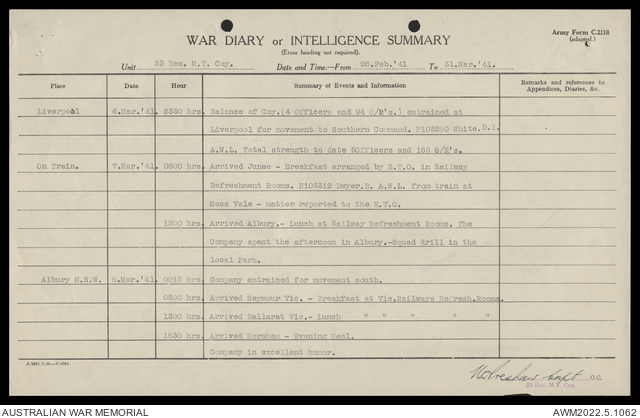 Army Form C.2118
WAR DIARY or INTELLIGENCE SUMMARY (adapted.)
(Erase heading not required).
Unit 23 Res. M.T. Coy. Date and Time.—From 28.Feb.'41 To 31.Mar.'41.
Place Date Hour Summary of Events and Information Remarks and references to Appendices, Diaries, &c.
Liverpool 6.Mar.'41. 2330 hrs. Balance of Coy.(4 Officers and 94 O/R's.) entrained at
Liverpool for movement to Southern Command. N105200 White.D.I.
A.W.L. Total strength to date 5Officers and 165 O/R's.
On Train. 7.Mar.'41. 0800 hrs. Arrived Junee - Breakfast arranged by R.T.O. in Railway
Refreshment Rooms. N105312 Dwyer.B. A.W.L. from train at
Moss Vale - matter reported to the R.T.O.
1200 hrs. Arrived Albury.- Lunch at Railway Refreshment Rooms. The
Company spent the afternoon in Albury.-Squad drill in the
local Park.
Albury N.S.W. 8.Mar.'41. 0015 hrs. Company entrained for movement south.
0500 hrs. Arrived Seymour Vic. - Breakfast at Vic.Railways Refresh.Rooms.
1300 hrs. Arrived Ballarat Vic.- Lunch " " " " "
1830 hrs. Arrived Horsham - Evening Meal.
Company in excellent humor.
Capt O.C.
23 Res. M.T. Coy.
AUSTRALIAN WAR MEMORIAL AWM2022.5.1062